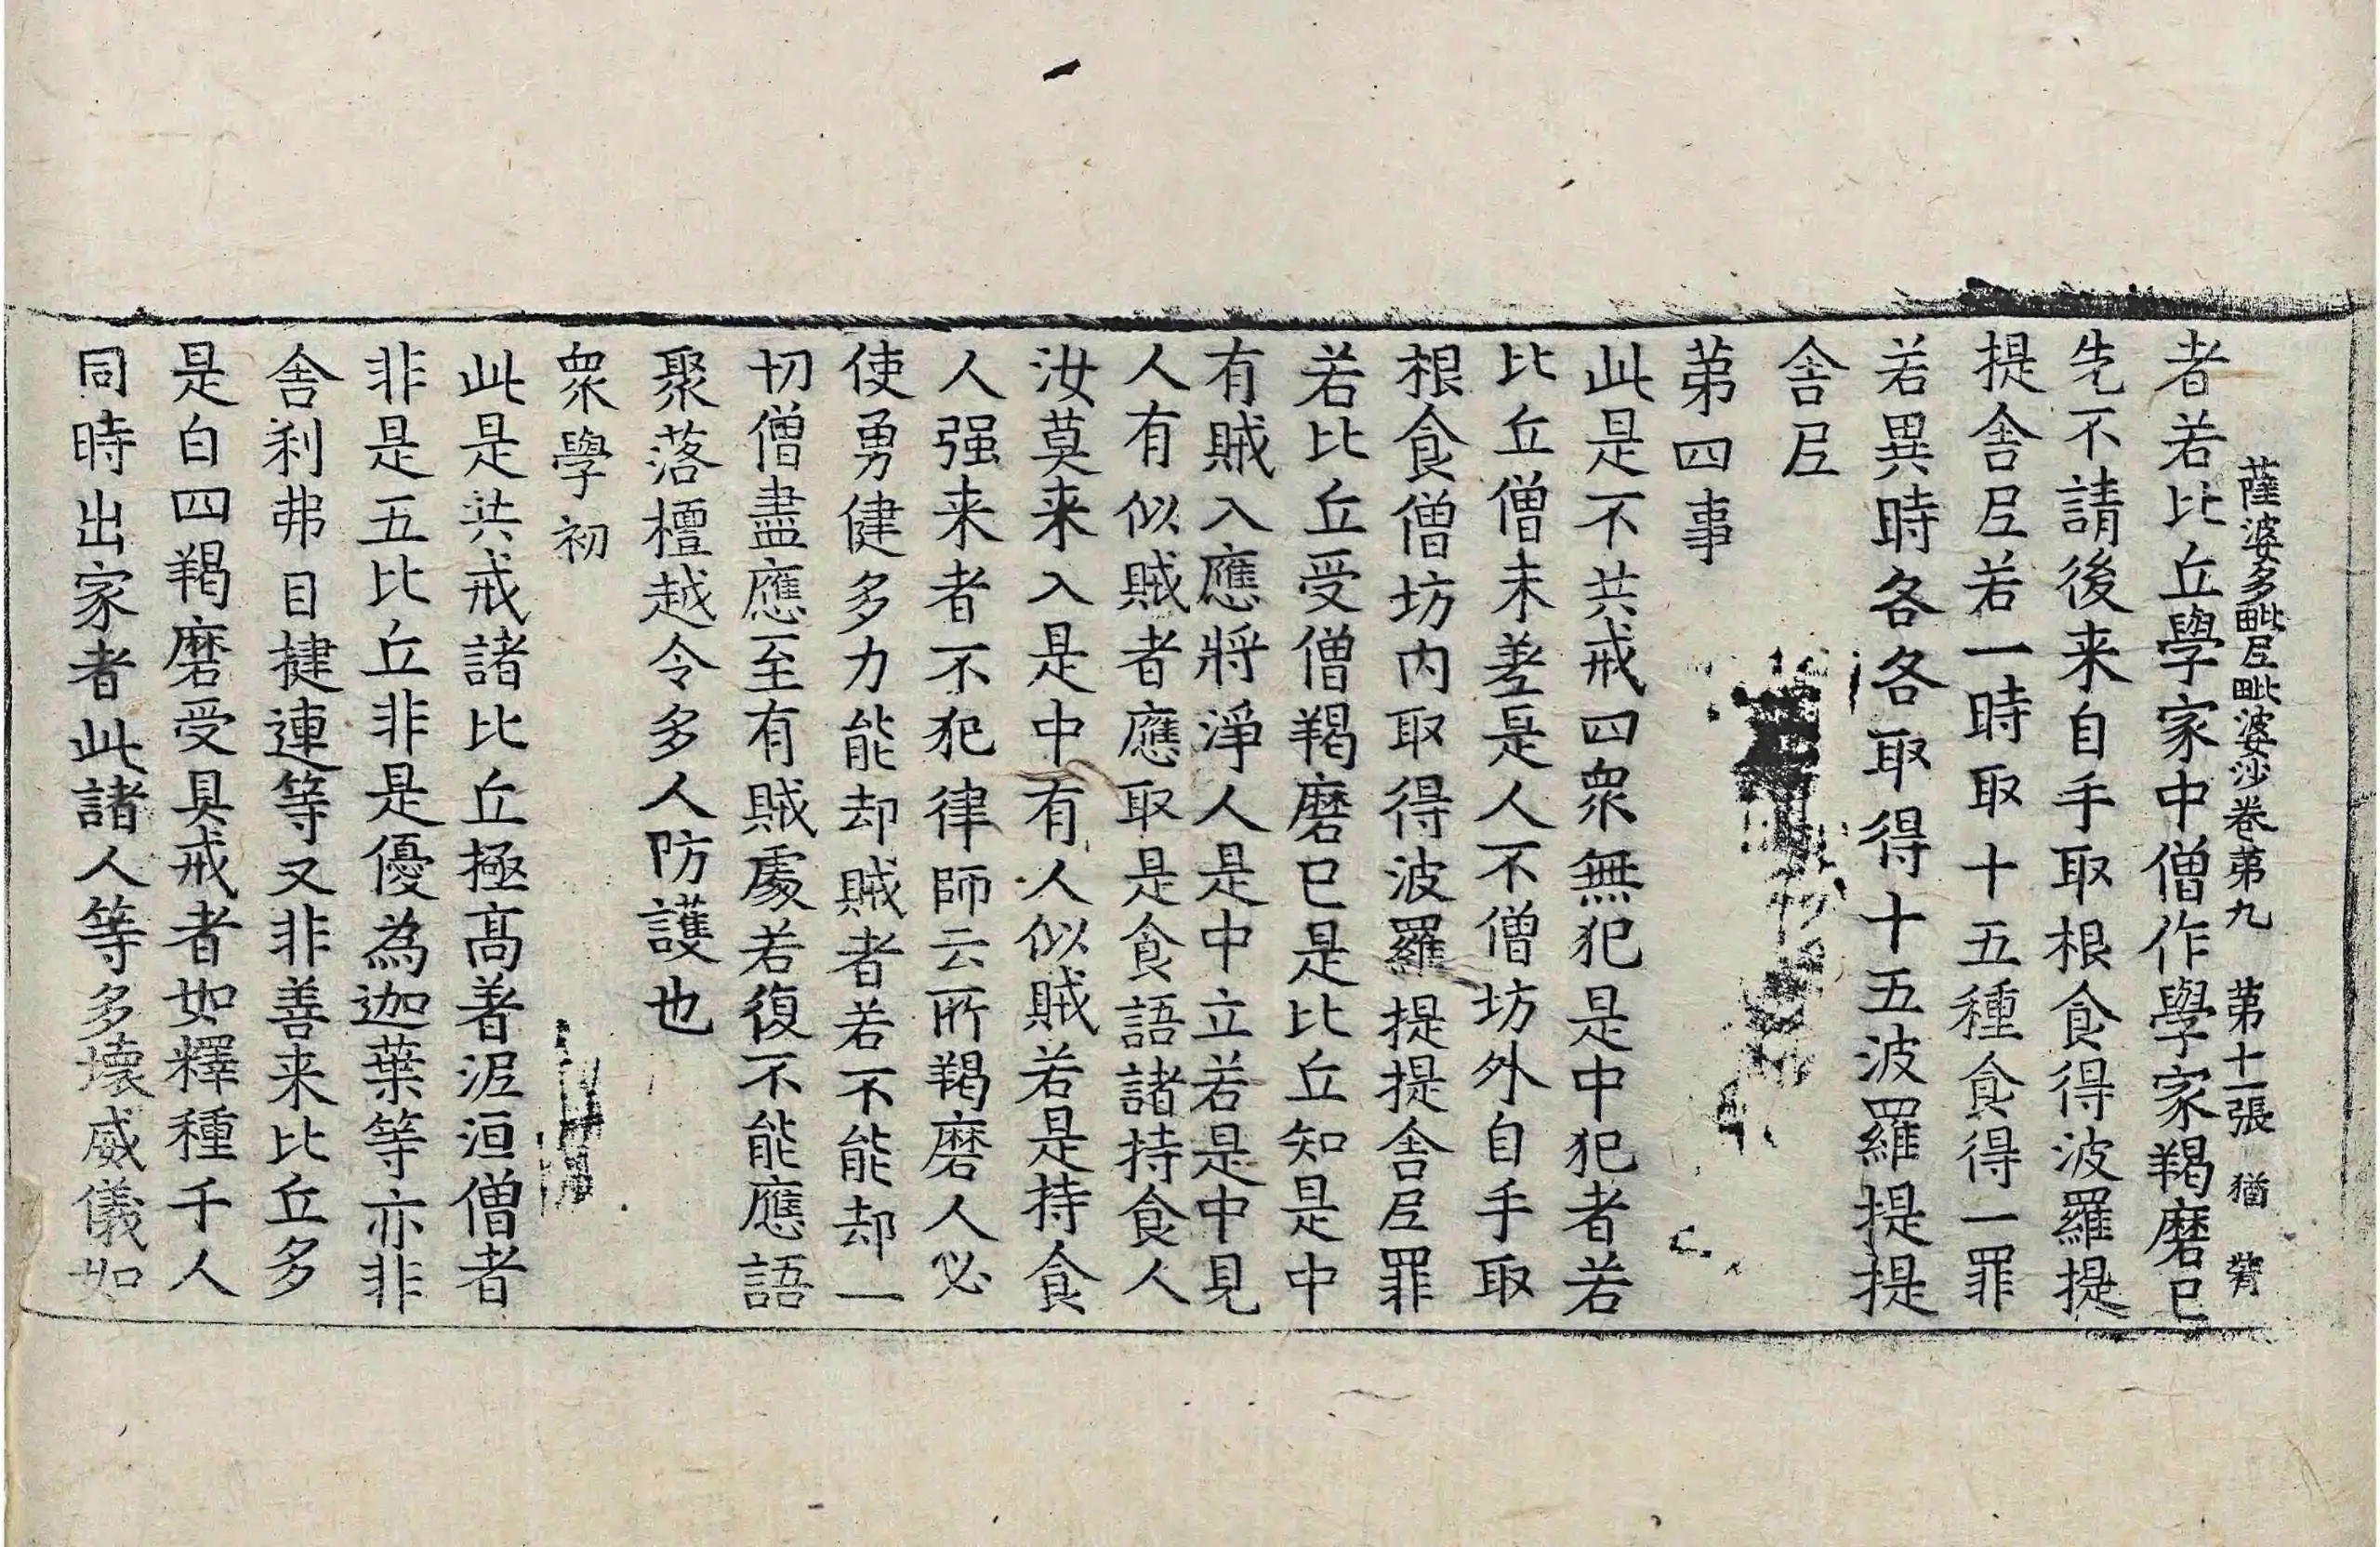 薩婆多毗尼毗婆沙卷第九　第十一張　猶
者若比丘學家中僧作學家羯磨已
先不請後来自手取根食得波羅提
提舍尼若一時取十五種食得一罪
若異時各各取得十五波羅提提
舍尼
第四事
此是不共戒四衆無犯是中犯者若
比丘僧未差是人不僧坊外自手取
根食僧坊内取得波羅提提舍尼罪
若比丘受僧羯磨已是比丘知是中
有賊入應將淨人是中立若是中見
人有似賊者應取是食語諸持食人
汝莫来入是中有人似賊若是持食
人强来者不犯律師云所羯磨人必
使勇健多力能却賊者若不能却一
切僧盡應至有賊處若復不能應語
聚落檀越令多人防護也
衆學初
此是共戒諸比丘極高著泥洹僧者
非是五比丘非是優為迦葉等亦非
舍利弗目揵連等又非善来比丘多
是白四羯磨受具戒者如釋種千人
同時出家者此諸人等多壞威儀如